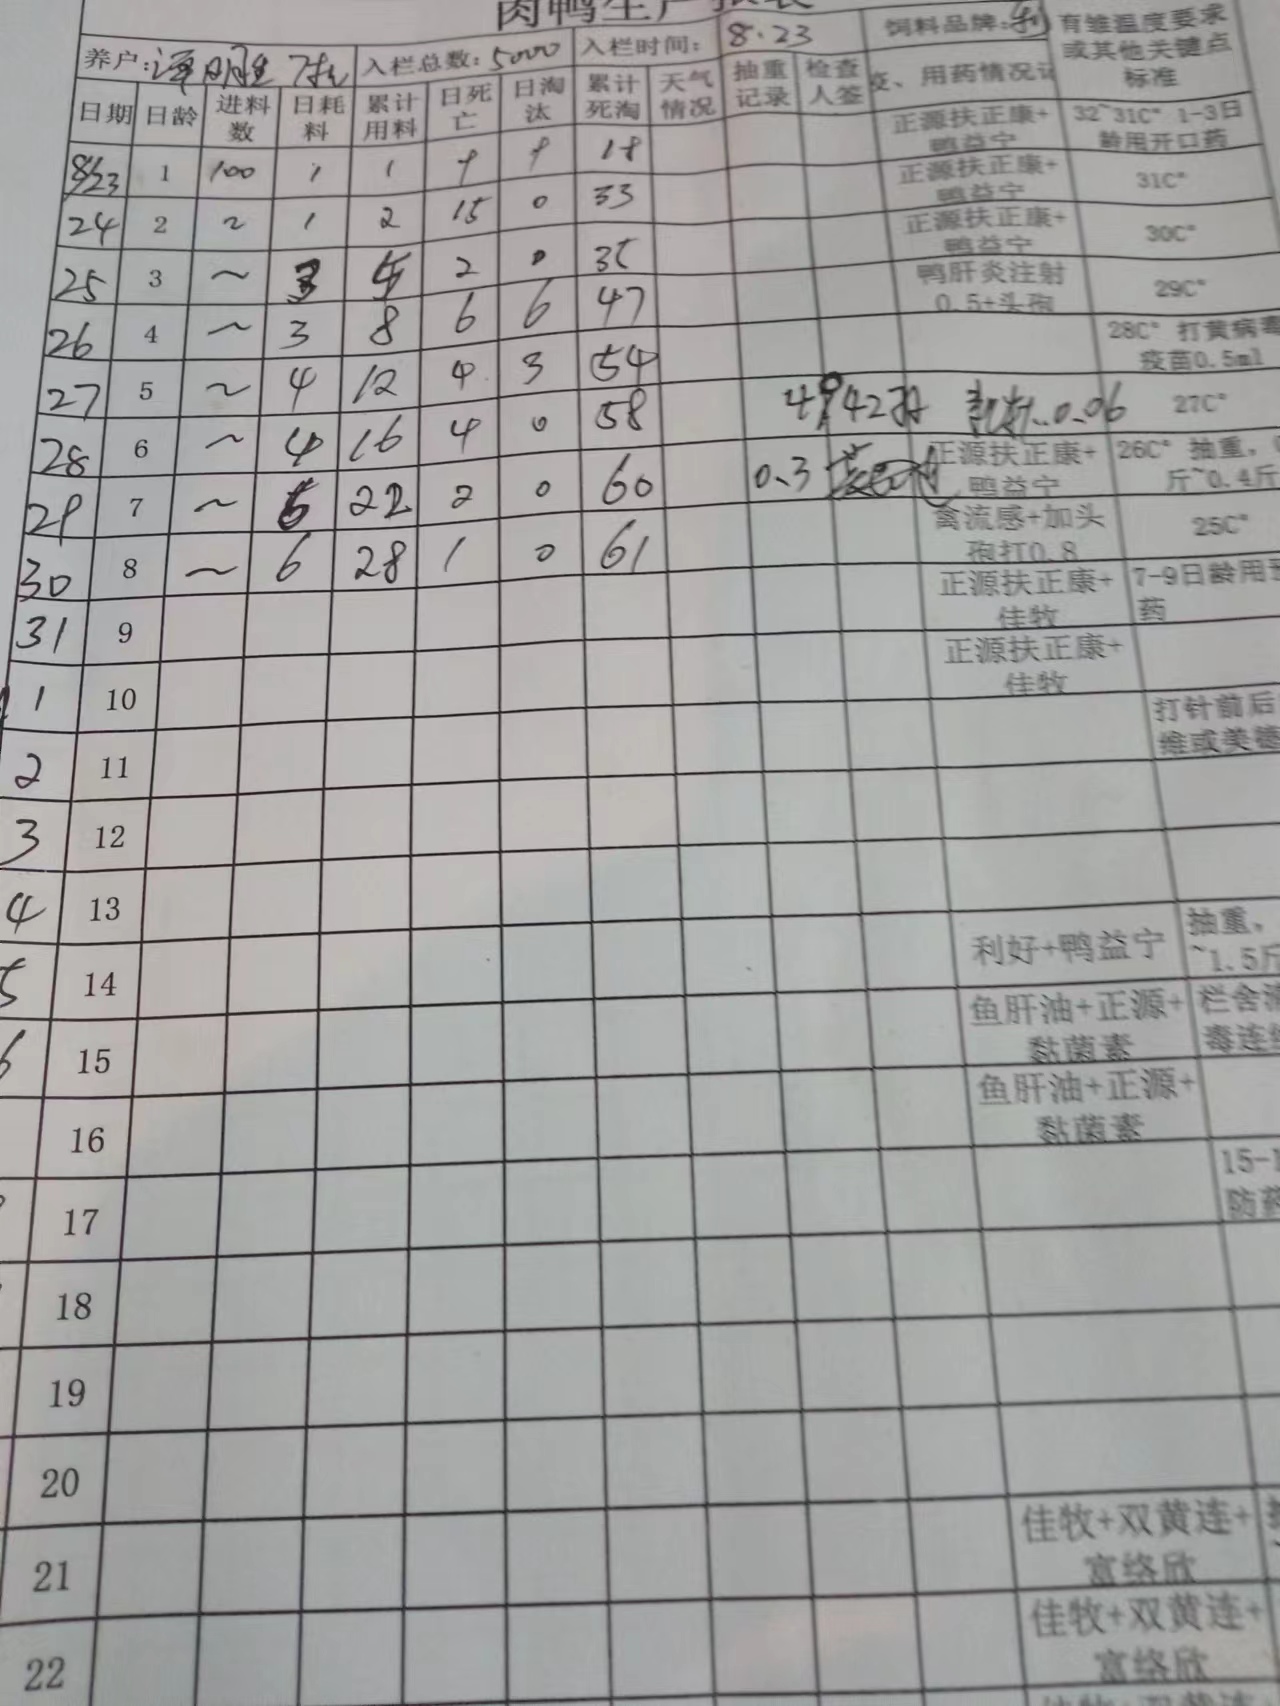 肉鸭生产报表
养户: 入栏总数:5000 入栏时间: 8.23 饲料品牌: 育雏温度要求或其他关键点标准
日期 日龄 进料数 日耗料 累计用料 日死亡 日淘汰 累计死淘 天气情况 抽重记录 检查人签 、用药情况
8/23 1 100 1 1 9 9 18 正源扶正康+鸭益宁 32~31C° 1-3日龄用开口药
24 2 ~ 1 2 15 0 33 正源扶正康+鸭益宁 31C°
25 3 ~ 3 5 2 0 35 正源扶正康+鸭益宁 30C°
26 4 ~ 3 8 6 6 47 鸭肝炎注射0.5+头孢 29C°
27 5 ~ 4 12 4 3 54 28C° 打黄病毒疫苗0.5ml
28 6 ~ 4 16 4 0 58 4942羽 0.06 27C°
29 7 ~ 6 22 2 0 60 0.3 正源扶正康+鸭益宁 26C° 抽重, 斤~0.4斤
30 8 ~ 6 28 1 0 61 禽流感+加头孢打0.8 25C°
31 9 正源扶正康+佳牧 7-9日龄用 药
1 10 正源扶正康+佳牧
2 11 打针前后 维或美德
3 12
4 13
5 14 利好+鸭益宁 抽重, ~1.5斤
6 15 鱼肝油+正源+黏菌素 栏舍 毒连
16 鱼肝油+正源+黏菌素
17 15-1 防药
18
19
20
21 佳牧+双黄连+富络欣
22 佳牧+双黄连+富络欣